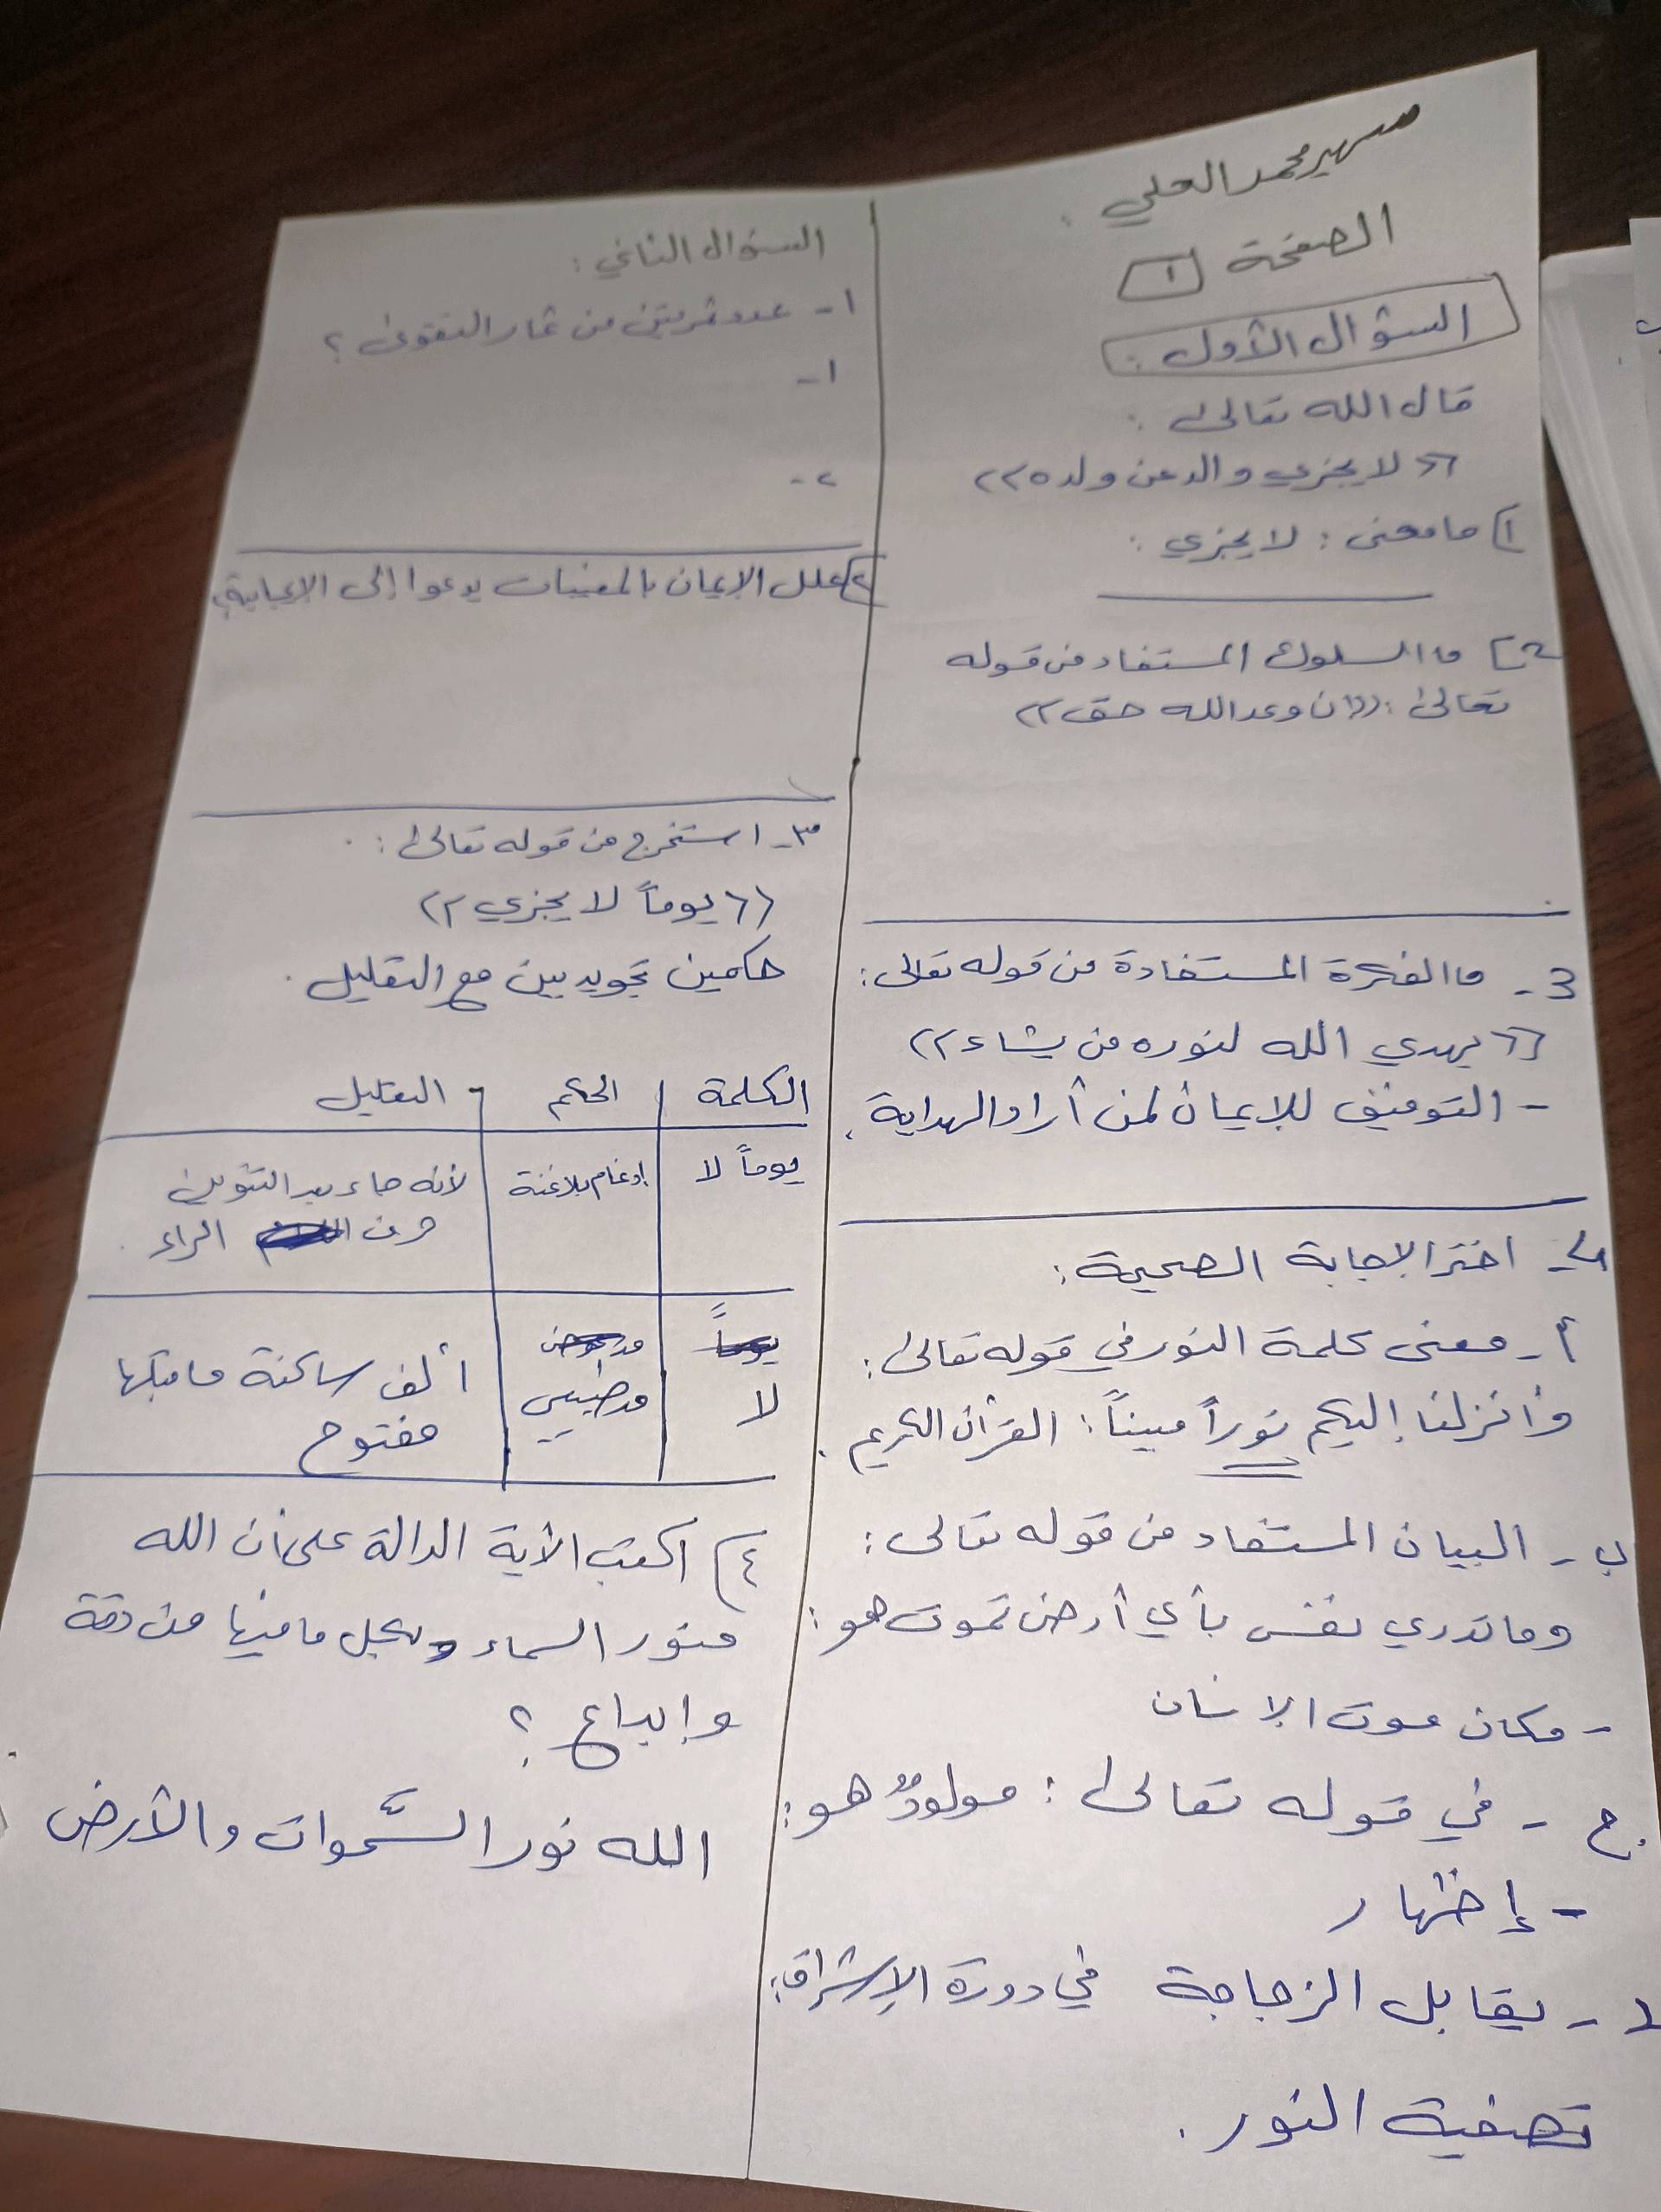 سهير محمد العلي
الصفحة ١
السؤال الأول :
قال الله تعالى :
<< لا يجزي والد عن ولده >>
١) ما معنى : لا يجزي :
٢) ما السلوك المستفاد من قوله
تعالى : ((إن وعد الله حق >>
3 - ما الفكرة المستفادة من قوله تعالى :
<< يهدي الله لنوره من يشاء >>
- التوفيق للإيمان لمن أراد الهداية .
٤ - اختر الإجابة الصحيحة :
أ - معنى كلمة النور في قوله تعالى :
وأنزلنا إليكم نوراً مبيناً : القرآن الكريم .
ب - البيان المستفاد من قوله تعالى :
وما تدري نفس بأي أرض تموت هو :
- مكان موت الإنسان
ج - في قوله تعالى : مولودٌ هو :
- إظهار
د - يقابل الزجاجة في دورة الإشراق :
تصفية النور .
السؤال الثاني :
١ - عدد ثمرتين من ثمار التقوى ؟
١ -
٢ -
٢) علل الإيمان بالمغيبات يدعوا إلى الإيجابية
٣ - استخرج من قوله تعالى :
<< يوماً لا يجزي >>
حكمين تجويديين مع التعليل .
الكلمة الحكم التعليل
يوماً لا إدغام بلا غنة لأنه جاء بعد التنوين
حرف الراء
لا مد طبيعي ألف ساكنة ما قبلها
مفتوح
٤) اكتب الآية الدالة على أن الله
منور السماء وبكل ما فيها من دقة
وإبداع ؟
الله نور السَّموات والأرض